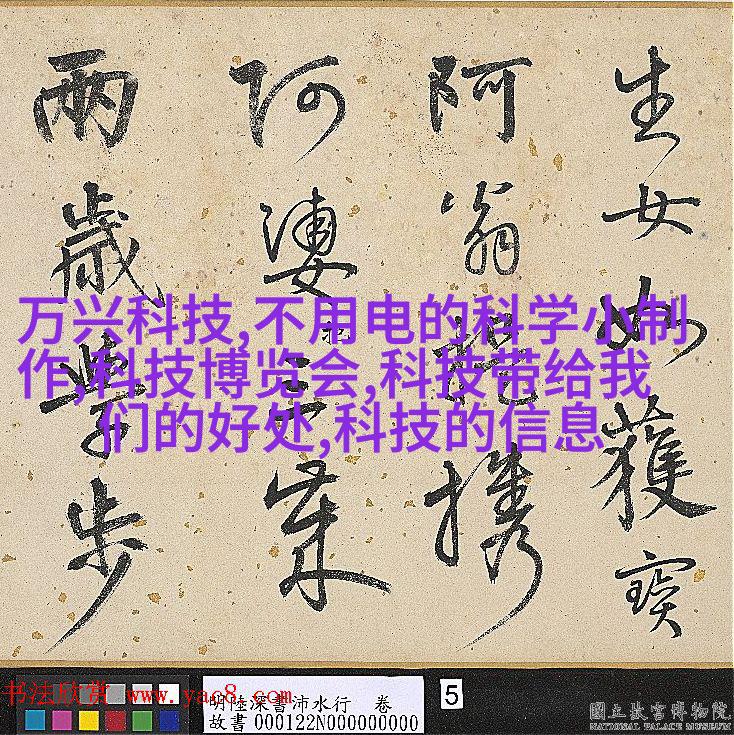 生女如獲寶
阿翁提携
阿婆
兩歲學步
万兴科技,不用电的科学小制
作,科技博览会,科技带给我
们的好处,科技的信息
书法欣赏 www.yac8.com
明陸深書沛水行 卷
故書000122N000000000
5
國立故宮博物院
NATIONAL PALACE MUSEUM